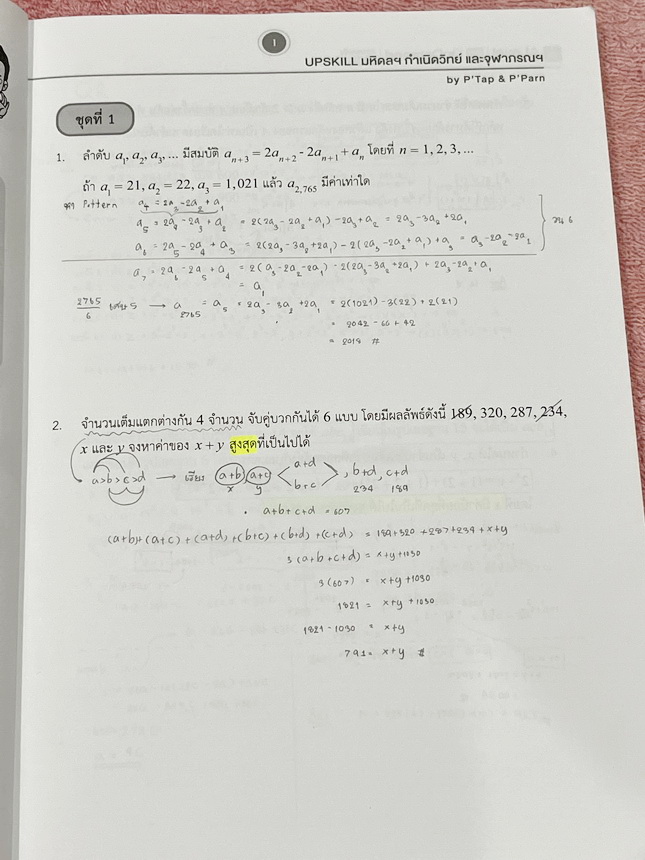 1
UPSKILL มหิดลฯ กำเนิดวิทย์ และจุฬาภรณฯ
by P'Tap & P'Parn
ชุดที่ 1
1. ลำดับ a₁, a₂, a₃, ... มีสมบัติ aₙ₊₃ = 2aₙ₊₂ - 2aₙ₊₁ + aₙ โดยที่ n = 1, 2, 3, ...
ถ้า a₁ = 21, a₂ = 22, a₃ = 1,021 แล้ว a₂,₇₆₅ มีค่าเท่าใด
หา Pattern a₄ = 2a₃ - 2a₂ + a₁
a₅ = 2a₄ - 2a₃ + a₂ = 2(2a₃ - 2a₂ + a₁) - 2a₃ + a₂ = 2a₃ - 3a₂ + 2a₁
a₆ = 2a₅ - 2a₄ + a₃ = 2(2a₃ - 3a₂ + 2a₁) - 2(2a₃ - 2a₂ + a₁) + a₃ = a₃ - 2a₂ - 2a₂ วน 6
a₇ = 2a₆ - 2a₅ + a₄ = 2(a₃ - 2a₂ - 2a₁) - 2(2a₃ - 3a₂ + 2a₁) + 2a₃ - 2a₂ + a₁
= a₁
2765/6 เศษ 5 → a₂₇₆₅ = a₅ = 2a₃ - 3a₂ + 2a₁ = 2(1021) - 3(22) + 2(21)
= 2042 - 66 + 42
= 2018 #
2. จำนวนเต็มแตกต่างกัน 4 จำนวน จับคู่บวกกันได้ 6 แบบ โดยมีผลลัพธ์ดังนี้ 189, 320, 287, 234,
x และ y จงหาค่าของ x + y สูงสุดที่เป็นไปได้
a > b > c > d → เรียง (a+b) (a+c) < a+d b+c > , b+d, c+d
x y 234 189
• a+b+c+d = 607
(a+b)+(a+c)+(a+d)+(b+c)+(b+d)+(c+d) = 189+320+287+234+x+y
3(a+b+c+d) = x+y+1030
3(607) = x+y+1030
1821 = x+y+1030
1821 - 1030 = x+y
791 = x+y #